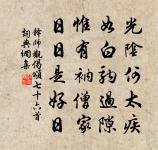 光陰何太疾
如白駒過隙
惟有衲僧家
日日是好日
釋師觀偈頌七十六首
詞典網集